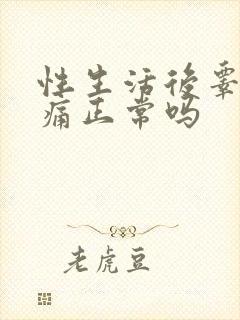 性生活后睾
痛正常吗
老虎豆